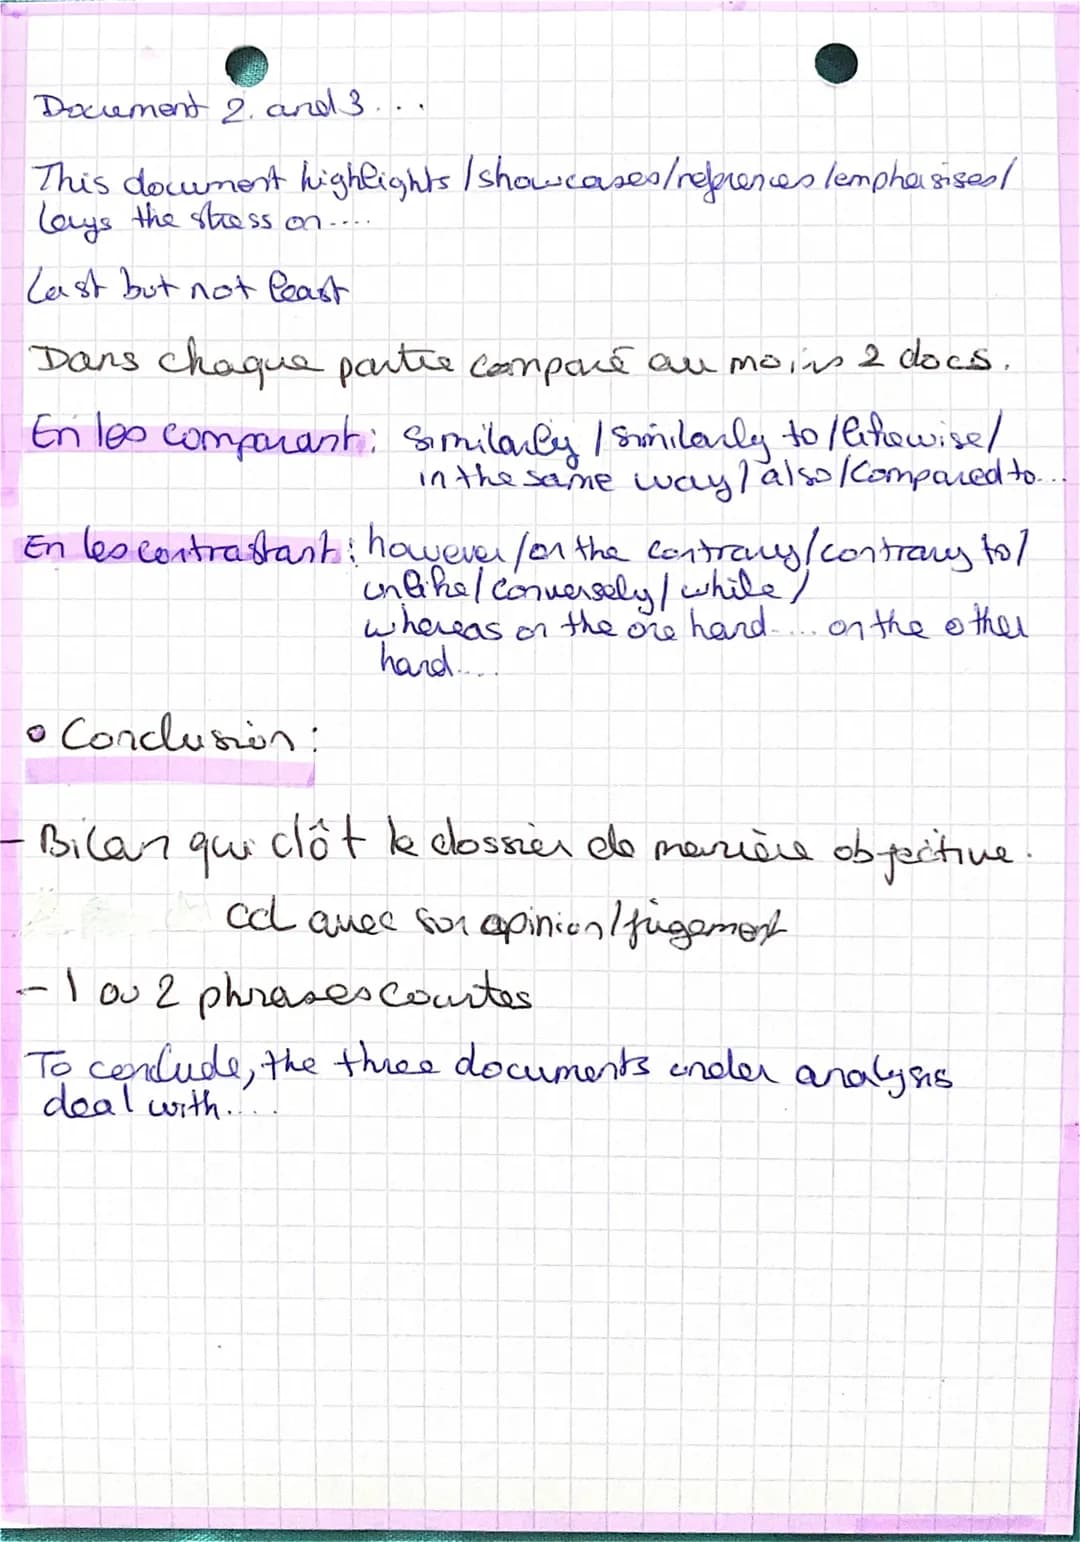 Document 2. and 3...
This document highlights / showcases/references/emphasises/
lays the stress on....
Last but not least
Dans chaque partie comparé au moins 2 docs.
En les comparant: Similarly / Similarly to / likewise/
in the same way / also / Compared to...
En les contrastant: however / on the contrary / contrary to /
unlike / conversely / while /
whereas on the one hand.... on the other
hand....
• Conclusion:
- Bilan qui clôt le dossier de manière objective.
ccl avec son opinion / jugement
- 1 ou 2 phrases courtes
To conclude, the three documents under analysis
deal with....